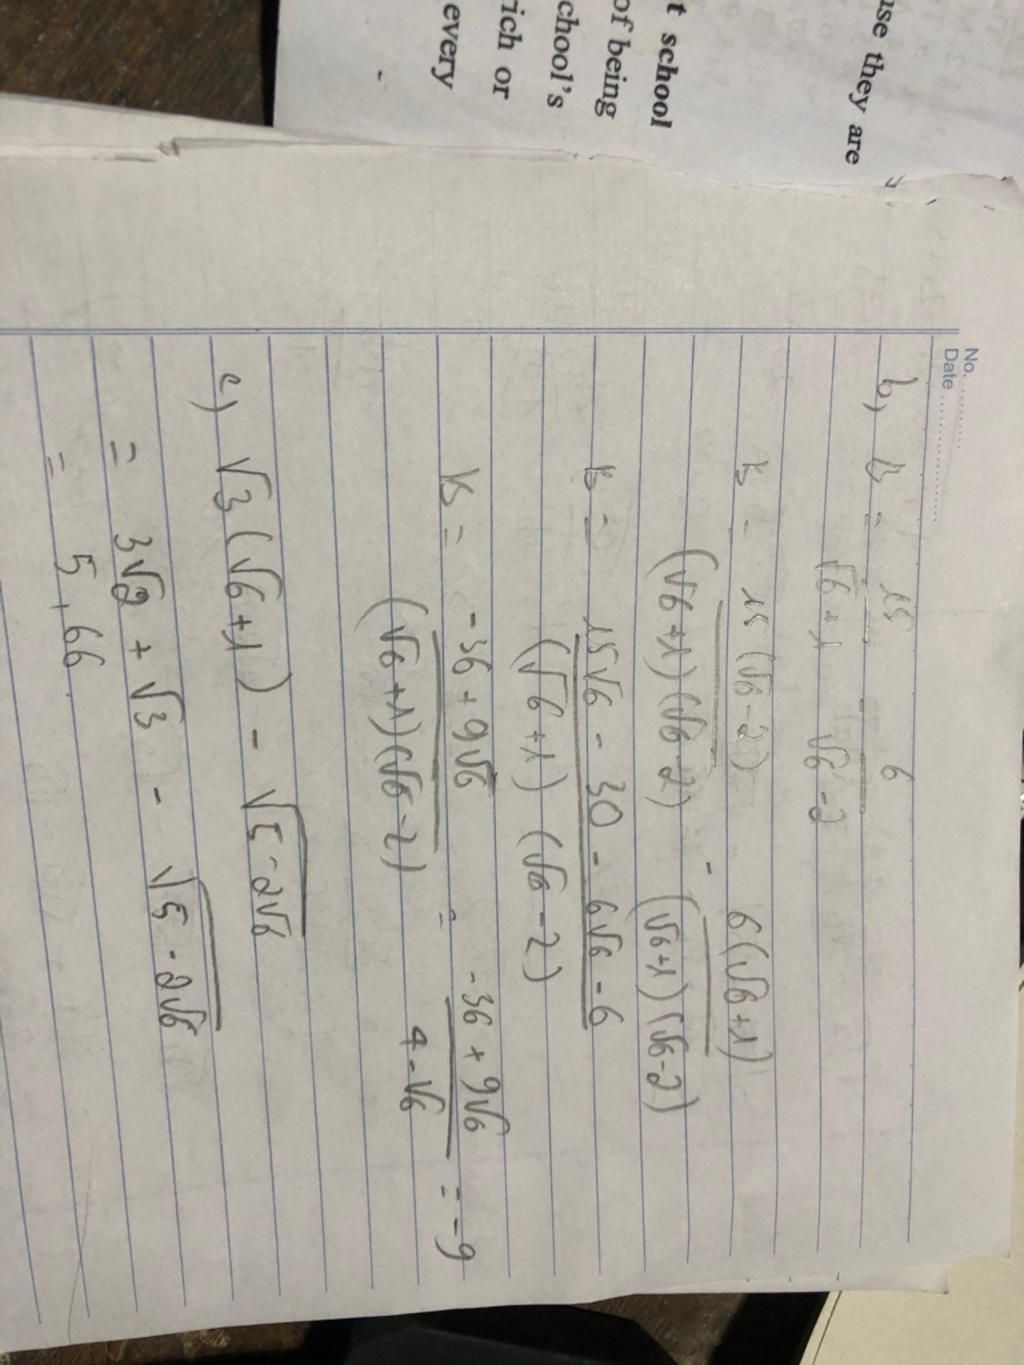 use they are
t school
of being
chool's
rich or
every
No. ............
Date ....................
b, B = 15/(√6+1) - 6/(√6-2)
B = 15(√6-2)/((√6+1)(√6-2)) - 6(√6+1)/((√6+1)(√6-2))
B = (15√6 - 30 - 6√6 - 6)/((√6+1)(√6-2))
B = (-36+9√6)/((√6+1)(√6-2)) = (-36+9√6)/(4-√6) = -9
c) √3(√6+1) - √(5-2√6)
= 3√2 + √3 - √(5-2√6)
= 5,66